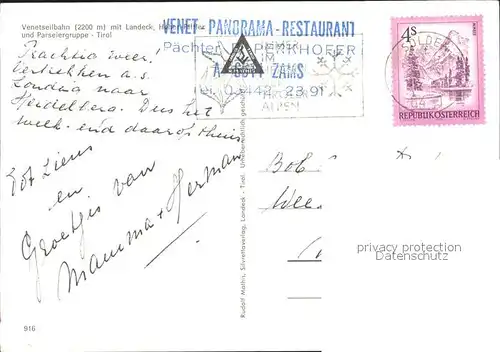 Venetseilbahn (2200 m) mit Landeck,
und Parseiergruppe - Tirol
VENET - PANORAMA - RESTAURANT
Pächter
A- ZAMS
4S
SÖLDEN
REPUBLIK ÖSTERREICH
Prachtig weer!
Vertrekken a.s.
Zondag naar
Heidelberg. Dus het
week-end daarop thuis
Tot Ziens
en
Groetjes van
Mamma + Herman
Rudolf Mathis, Silvrettaverlag, Landeck - Tirol.
Bob
privacy protection
Datenschutz
916